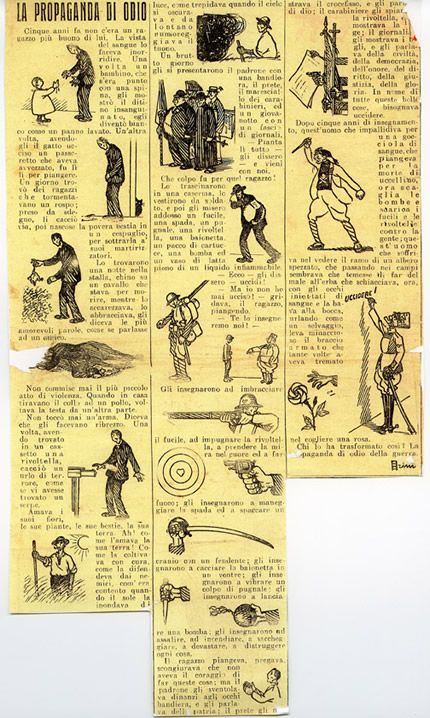 LA PROPAGANDA DI ODIO
Cinque anni fa non c'era un ra-
gazzo più buono di lui. La vista
del sangue lo
faceva inor-
ridire. Una
volta un
bambino, che
s'era punto
con una spi-
na, gli mo-
strò il dito
insangui-
nato, egli
diventò bian-
co come un panno lavato. Un'altra
volta, aven-
do il gatto uc-
ciso un pas-
serotto che
aveva
avvezzato, fu lì
lì per piangere.
Un giorno tro-
vò dei ragazzi
che tormenta-
vano un rospo;
preso da sde-
gno, li caccio
via, poi nascose la povera bestia in
un cespuglio,
per sottrarla a
suoi martiriz-
zatori.
Lo trovarono
una notte nella
stalla, chino su
un cavallo che
stava per mo-
rire, mentre lo
accarezzava, lo
abbracciava, gli
diceva le più
amorevoli parole, come se parlasse
ad un amico.
Non commise mai il più piccolo
atto di violenza. Quando in casa
tiravano il collo ad un pollo, vol-
tava la testa da un'altra parte.
Non toccò mai un'arma. Diceva
che gli facevano ribrezzo. Una
volta, aven-
do trovato
in un cas-
setto una
rivoltella,
cacciò un
urlo di ter-
rore, come
se vi avesse
trovato un
serpe.
Amava i
suoi fiori,
le sue piante, le sue bestie, la sua
terra. Ah! co-
me l'amava la
sua terra! Co-
me la coltiva-
va con cura,
come la difen-
deva dai ne-
mici, com'era
contento quan-
do il sole la
inondava di
luce, come trepidava quando il cielo si
oscura-
va e da
lontano
rumoreg-
giava il
tuono.
Un brut-
to giorno
gli si presentarono il padrone con
una bandie-
ra, il prete,
il marescial-
lo dei cara-
binieri, ed
un giova-
notto con
un fascio
di giornali.
— Pianta
lì tutto —
gli dissero
e vieni
con noi.
Che colpo fu per quel ragazzo!
Lo trascinarono
in una caserma, lo
vestirono da solda-
to, e poi gli misero
addosso un fucile,
una spada, un pu-
gnale, una rivoltel-
la, una baionetta,
un pacco di cartuc-
ce, una bomba ed
un vaso di latta
pieno di un liquido infiammabile.
— Ecco — gli dis-
sero — uccidi!
— Ma io non ho
mai ucciso! — gri-
dava, il ragazzo
piangendo.
— Te lo insegne-
remo noi! —
Gli insegnarono ad imbracciare
il fucile, ad impugnare la rivoltel-
la, a prendere la mi-
ra nel cuore ed a far
fuoco; gli insegnarono a maneg-
giare la spada ed a spaccare un
cranio con un fendente; gli inse-
gnarono a cacciare la baionetta in
un ventre; gli inse-
gnarono a vibrare un
colpo di pugnale; gli
insegnarono a lancia-
re una bomba; gli insegnarono ad
assalire, ad incendiare, a saccheg-
giare, a devastare, a distruggere
ogni cosa.
Il ragazzo piangeva, pregava,
scongiurava che non
aveva il coraggio di
far queste cose; ma il
padrone gli sventola-
va dinanzi agli occhi
bandiera, e gli parla-
va della patria; il prete gli
strava il crocefisso, e gli
di dio; il carabiniere gli spia-
la rivoltella, e
mostrava la
ge; il giornali
gli mostrava i
gli, e gli parla-
va della civiltà,
della democrazia,
dell'onore, del di-
ritto, della giu-
stizia, della glo-
ria. In nome di
tutte queste belle
cose, bisognava
uccidere.
Dopo cinque anni di insegnamen-
to, quest'uomo che impallidiva per
una goc-
ciola di
sangue, che
piangeva
per la
morte di
uccellino,
ora sca-
glia le
bombe e
scarica i
fucili e le
rivoltelle
contro la
gente; que-
st'uomo
che soffri-
va nel vedere il ramo di un albero
spezzato, che passando nei campi
sembrava che temesse di far del
male all'erba che schiacciava, ora,
con gli occhi
iniettati di
sangue e la ba-
va alla bocca,
urlando come
un selvaggio,
leva minaccio-
so il braccio
armato che
tante volte a-
veva tremato
UCCIDERE!
nel cogliere una rosa.
Chi lo ha trasformato così? La
propaganda di odio della guerra.